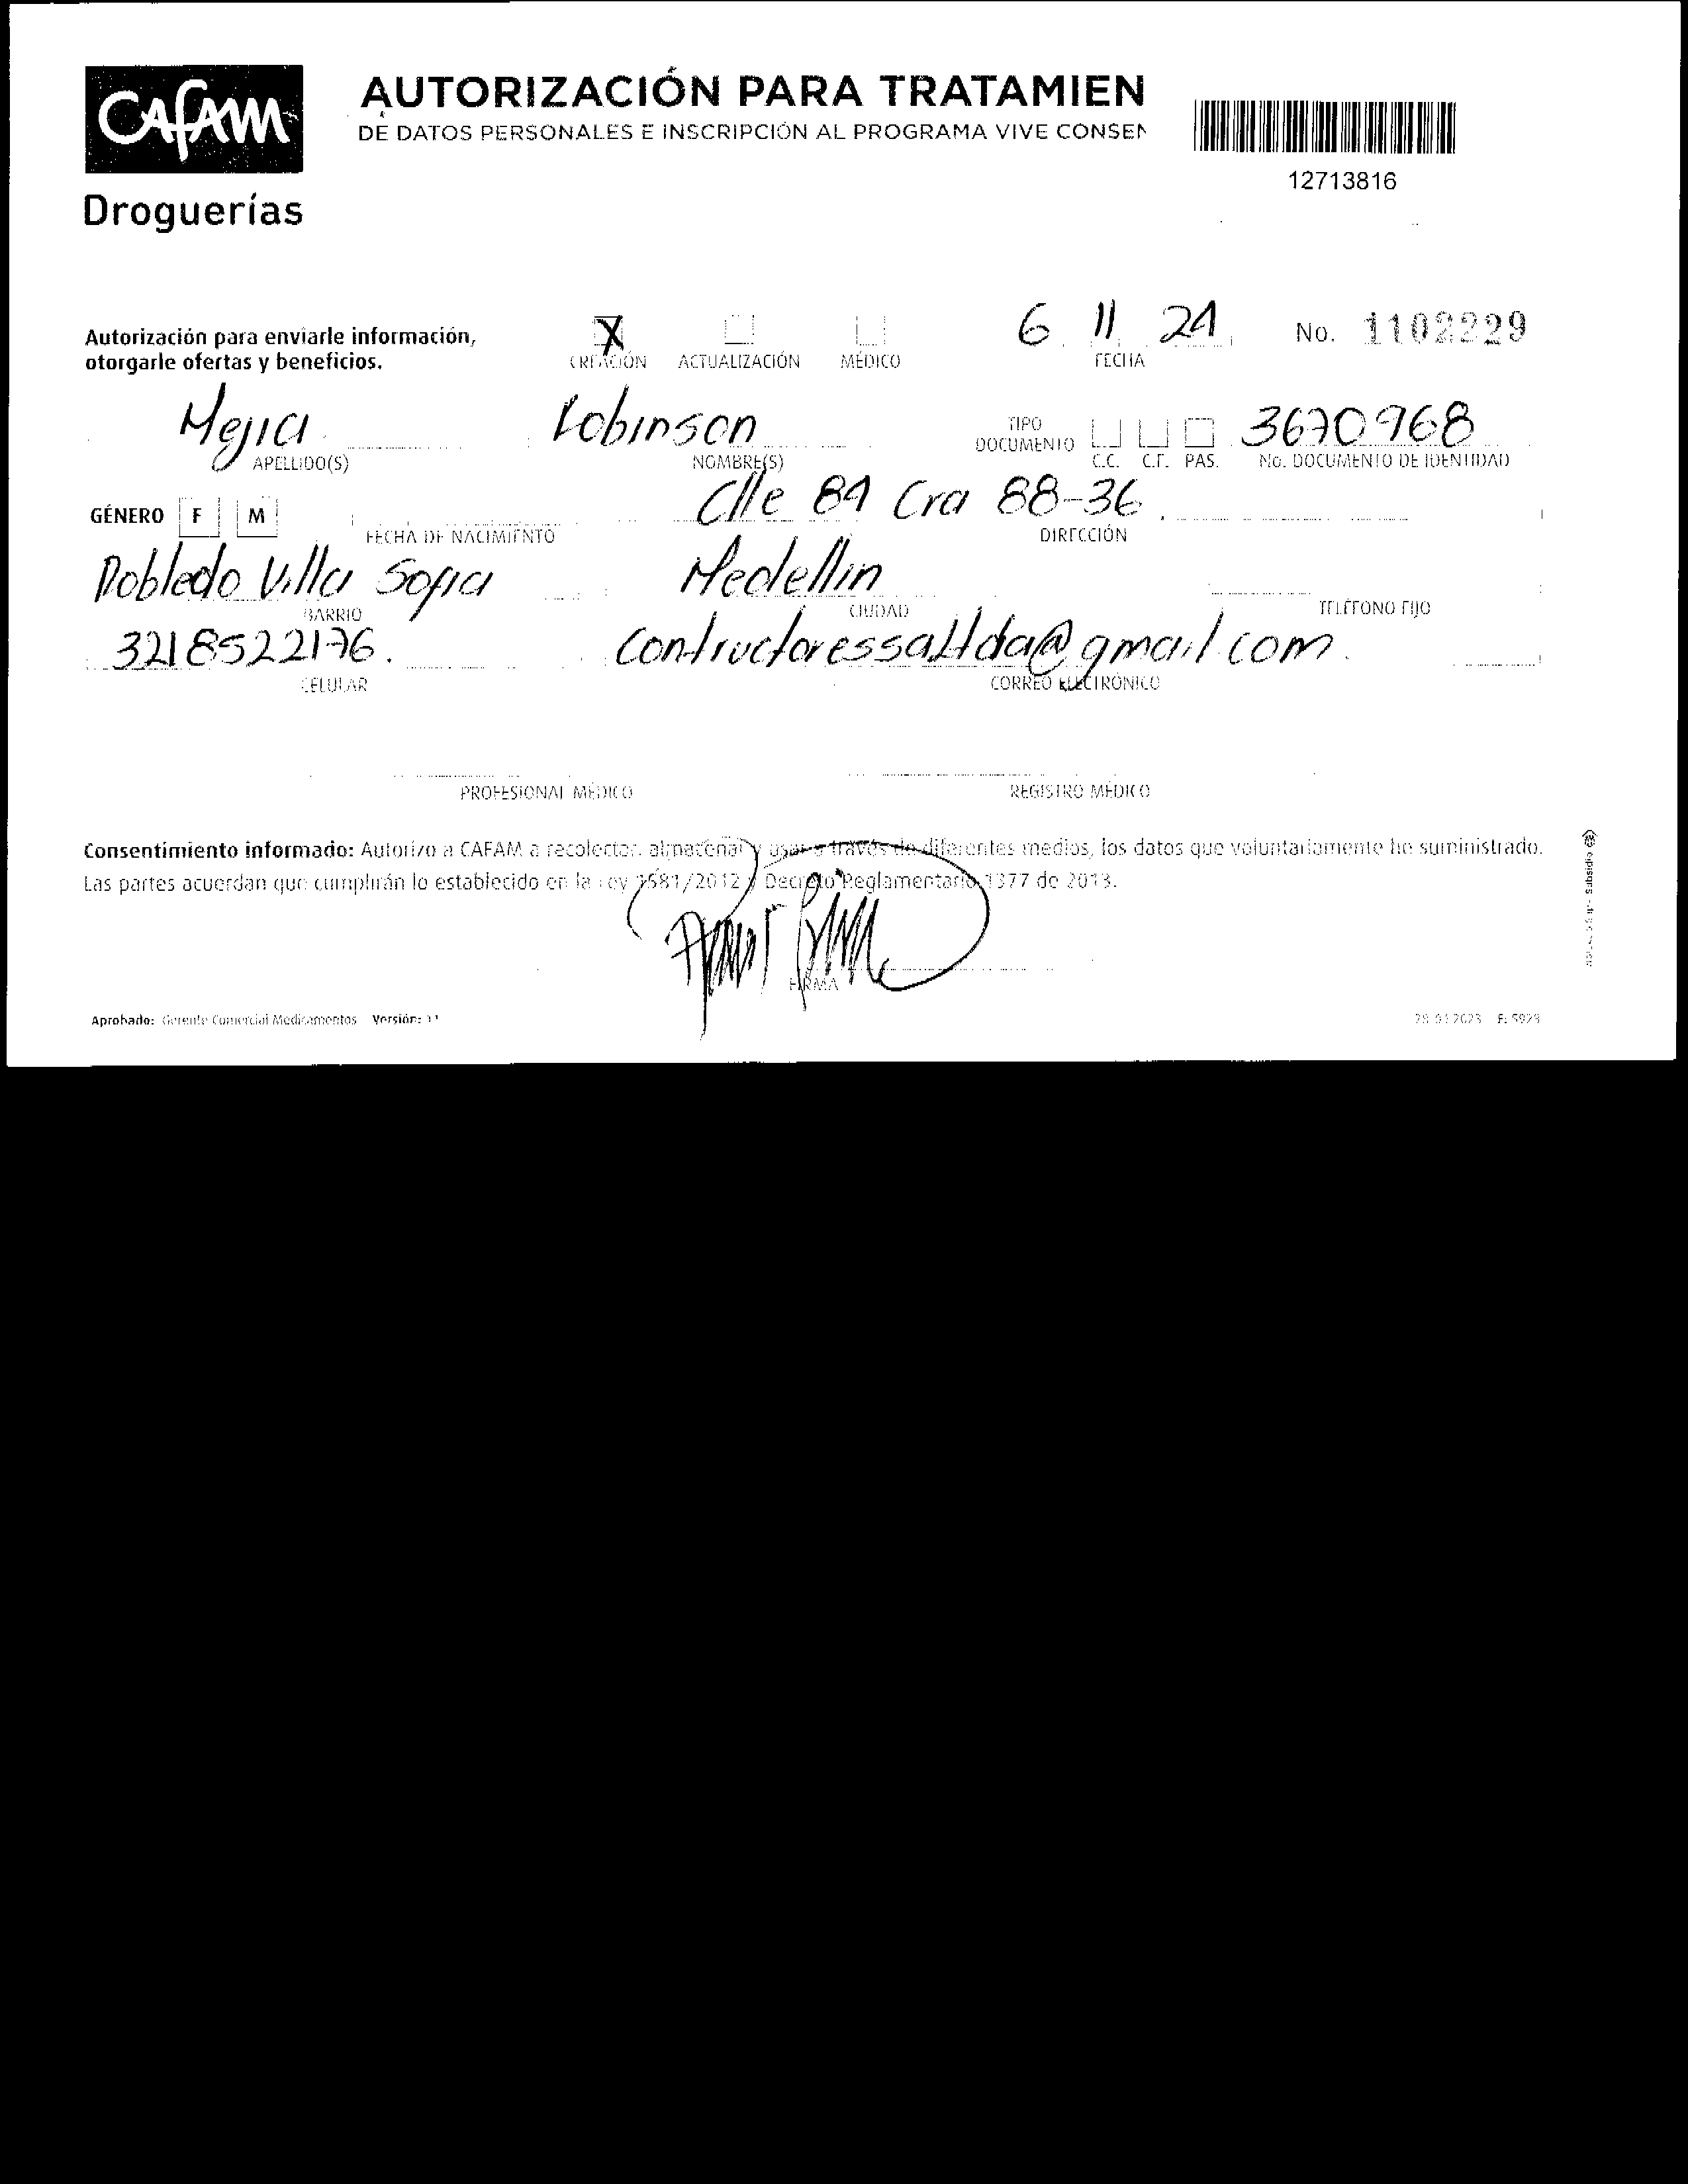 CAFAM
Droguerías
AUTORIZACIÓN PARA TRATAMIEN
DE DATOS PERSONALES E INSCRIPCIÓN AL PROGRAMA VIVE CONSEN
12713816
Autorización para enviarle información,
otorgarle ofertas y beneficios.
X
CREACIÓN ACTUALIZACIÓN MÉDICO
6 11 24
FECHA
No. 1102229
Mejia Robinson 3670968
APELLIDO(S) NOMBRE(S) TIPO DOCUMENTO C.C. C.E. PAS. No. DOCUMENTO DE IDENTIDAD
GÉNERO F M Clle 84 Cra 88-36
FECHA DE NACIMIENTO DIRECCIÓN
Robledo Villa Sofia Medellin
BARRIO CIUDAD TELÉFONO FIJO
3218522176. Contructoressaltda@gmail.com
CELULAR CORREO ELECTRÓNICO
PROFESIONAL MÉDICO REGISTRO MÉDICO
Consentimiento informado: Autorizo a CAFAM a recolectar, almacenar y usar a través de diferentes medios, los datos que voluntariamente he suministrado.
Las partes acuerdan que cumplirán lo establecido en la Ley 1581/2012 y Decreto Reglamentario 1377 de 2013.
FIRMA
Aprobado: Gerente Comercial Medicamentos Versión: 11
F: 5928
Subsidio